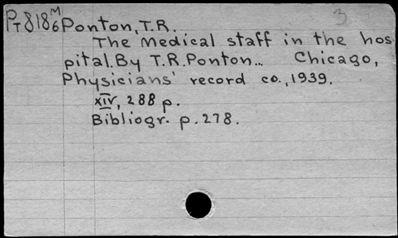 3
PT8186M Ponton, T.R.
The Medical staff in the hos
pital. By T.R. Ponton... Chicago,
Physicians' record co., 1939.
xiv, 288 p.
Bibliogr. p. 278.